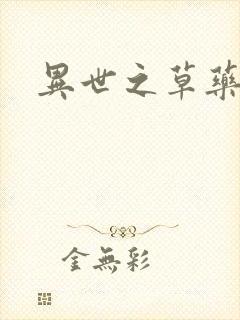 異世之草藥
金無彩